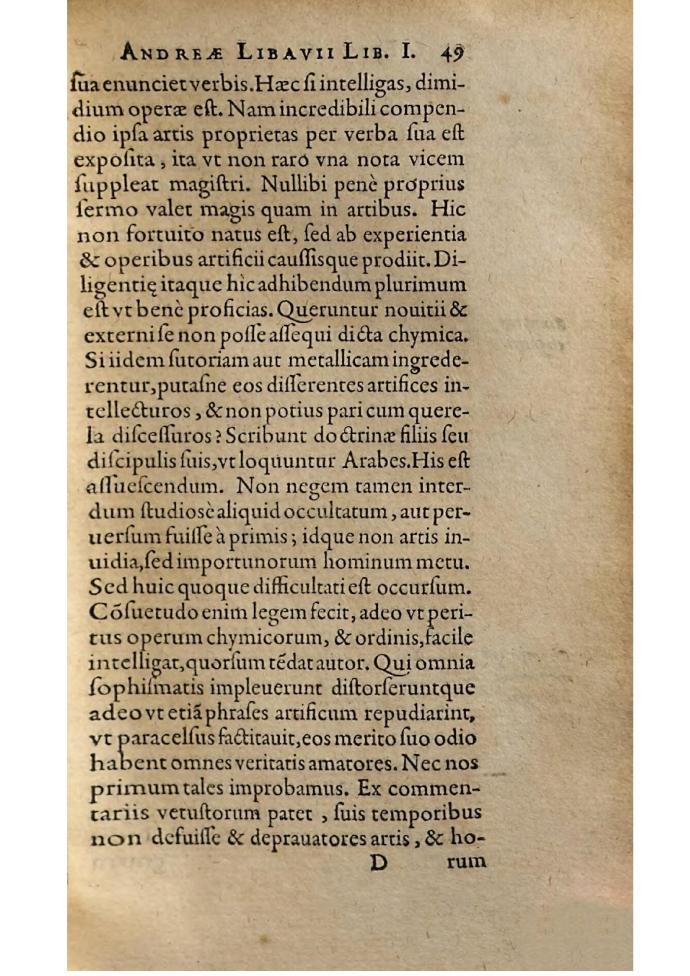 ANDREÆ LIBAVII LIB. I. 49
ſua enunciet verbis. Hæc ſi intelligas, dimi-
dium operæ eſt. Nam incredibili compen-
dio ipſa artis proprietas per verba ſua eſt
expoſita, ita vt non raro vna nota vicem
ſuppleat magiſtri. Nullibi penè proprius
ſermo valet magis quam in artibus. Hic
non fortuito natus eſt, ſed ab experientia
& operibus artificii cauſſisque prodiit. Di-
ligentię itaque hîc adhibendum plurimum
eſt vt benè proficias. Queruntur nouitii &
externi ſe non poſſe aſſequi dicta chymica.
Si iidem ſutoriam aut metallicam ingrede-
rentur, putaſne eos diſſerentes artifices in-
tellecturos, & non potius pari cum quere-
la diſceſſuros? Scribunt doctrinæ filiis ſeu
diſcipulis ſuis, vt loquuntur Arabes. His eſt
aſſueſcendum. Non negem tamen inter-
dum ſtudiosè aliquid occultatum, aut per-
uerſum fuiſſe à primis; idque non artis in-
uidia, ſed importunorum hominum metu.
Sed huic quoque difficultati eſt occurſum.
Cõſuetudo enim legem fecit, adeo vt peri-
tus operum chymicorum, & ordinis, facile
intelligat, quorſum tẽdat autor. Qui omnia
ſophiſmatis impleuerunt diſtorſeruntque
adeo vt etiã phraſes artificum repudiarint,
vt paracelſus factitauit, eos merito ſuo odio
habent omnes veritatis amatores. Nec nos
primum tales improbamus. Ex commen-
tariis vetuſtorum patet, ſuis temporibus
non defuiſſe & deprauatores artis, & ho-
D rum